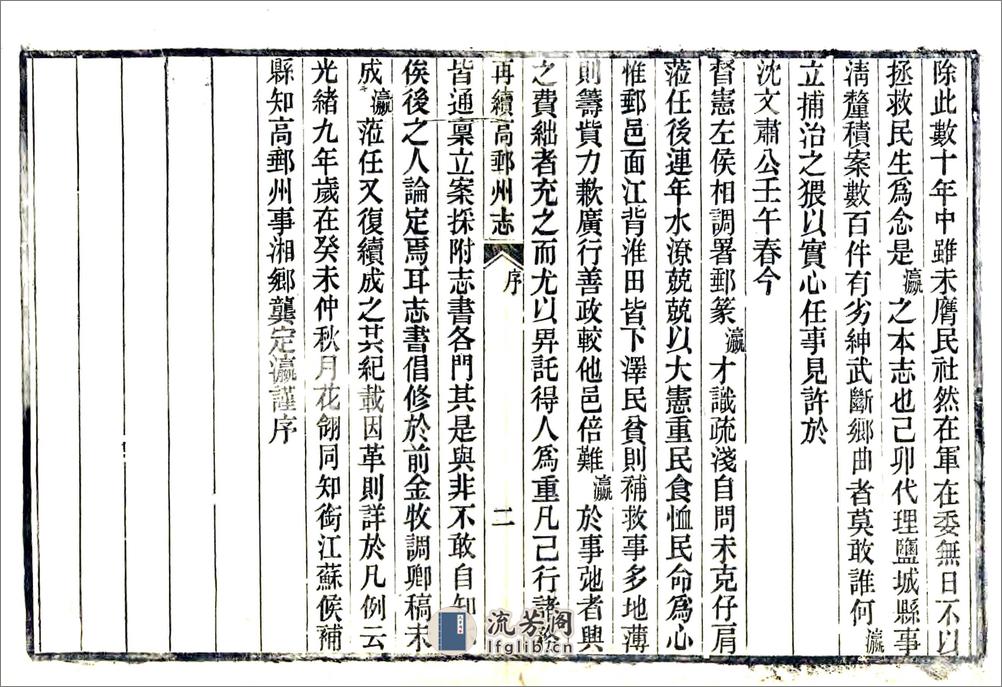 除此數十年中雖未膺民社然在軍在委無日不以
拯救民生爲念是瀛之本志也己卯代理鹽城縣事
淸釐積案數百件有劣紳武斷鄉曲者莫敢誰何瀛
立捕治之猥以實心任事見許於
沈文肅公壬午春今
督憲左侯相調署郵篆瀛才識疏淺自問未克仔肩
蒞任後連年水潦兢兢以大憲重民食恤民命爲心
惟郵邑面江背淮田皆下澤民貧則補救事多地薄
則籌貲力歉廣行善政較他邑倍難瀛於事弛者興
之費絀者充之而尤以畀託得人爲重凡已行諸
再續高郵州志
序
二
皆通稟立案採附志書各門其是與非不敢自知
俟後之人論定焉耳志書倡修於前金牧調卿稿未
成瀛蒞任又復續成之其紀載因革則詳於凡例云
光緒九年歲在癸未仲秋月花翎同知銜江蘇候補
縣知高郵州事湘鄉龔定瀛謹序
流芳閣
lfglib.cn